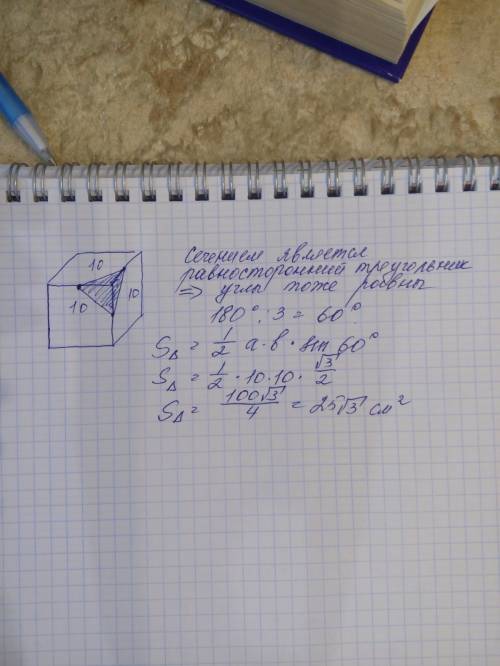 10
10
10
Сечением является
равносторонний треугольник
⇒ углы тоже равны
180° : 3 = 60°
S△ = 1/2 a·b·sin 60°
S△ = 1/2 · 10·10 · √3/2
S△ = 100√3/4 = 25√3 см²